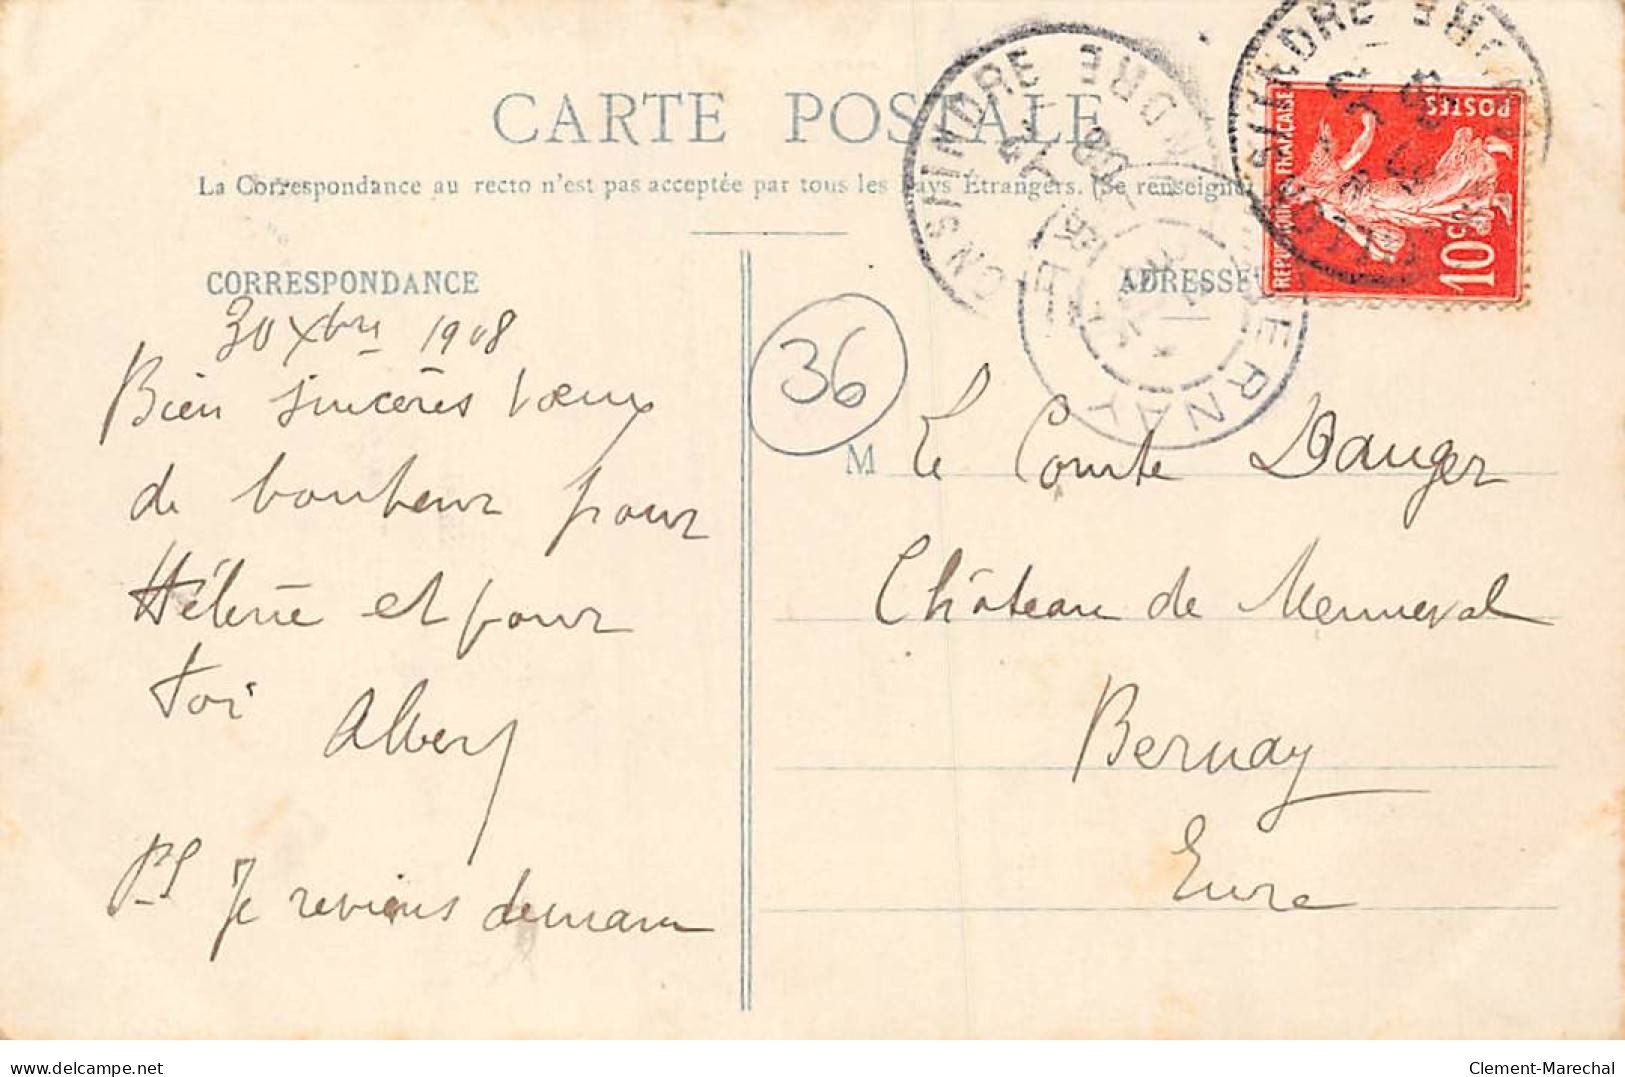 CARTE POSTALE
La Correspondance au recto n'est pas acceptée par tous les Pays Etrangers. (Se renseigne
CORRESPONDANCE
ADRESSE
REPUBLIQUE FRANÇAISE
POSTES
10 cs
INDRE
INDRE
BERNAY
EURE
36
30 Xbre 1908
Bien sincères voeux
de bonheur pour
Hélène et pour
toi
Albert
PS Je reviens demain
M Le Comte Dauger
Château de Menneval
Bernay
Eure
delcampe.net
Clement-Marechal